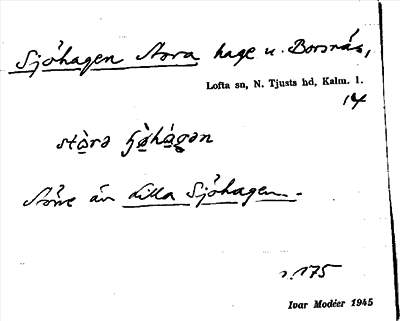 Sjöhagen Stora hage u. Borsnäs,
Lofta sn, N. Tjusts hd, Kalm. l.
14
Större än Lilla Sjöhagen.
s. 175
Ivar Modéer 1945